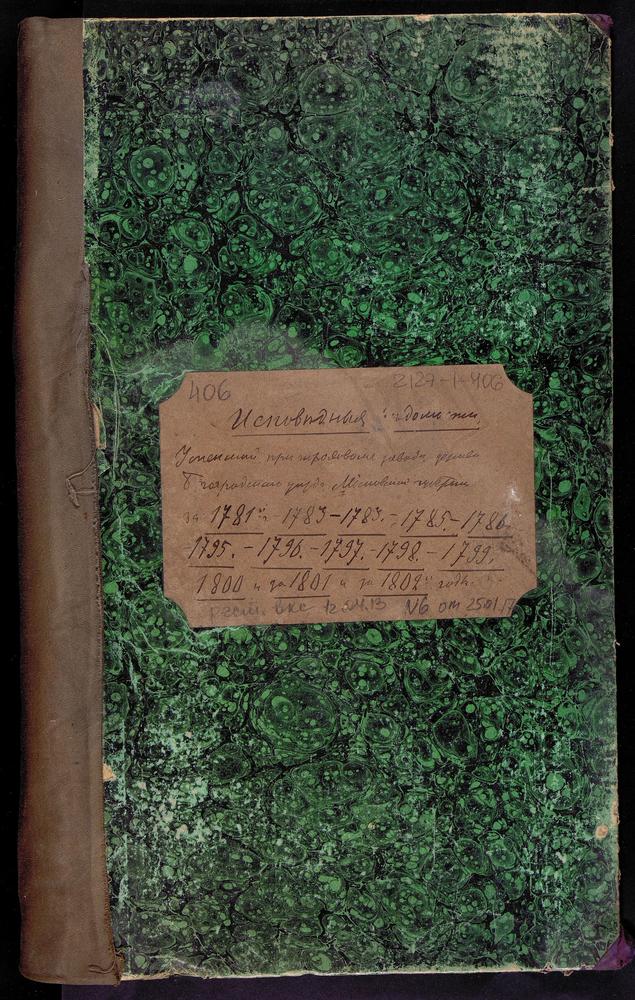 406 2127-1-406
Исповѣдныя
Успенской при пороховомъ заводѣ церкви
Богородскаго уѣзда Московской губерніи
за 1781й 1783-1783.-1785-1786
1795.-1796.-1797.-1798.-1799.
1800 и за 1801 и за 1802й годъ.
вкс №6 от 25.01.17